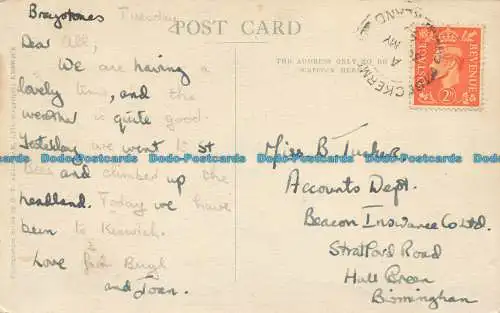 Braystones Tuesday
POST CARD
THE ADDRESS ONLY TO BE
WRITTEN HERE
Dear All,
We are having a
lovely time, and the
weather is quite good.
Yesterday we went to St
Bees and climbed up the
headland. Today we have
been to Keswick.
Love from
and Joan.
Miss B. Tucker
Accounts Dept.
Beacon Insurance Co Ltd.
Stratford Road
Hall Green
Birmingham
BECKERMET
CUMBERLAND
POSTAGE
REVENUE
2D
Dodo-Postcards Dodo-Postcards Dodo-Postcards Dodo-Postcards Dodo-Postcards